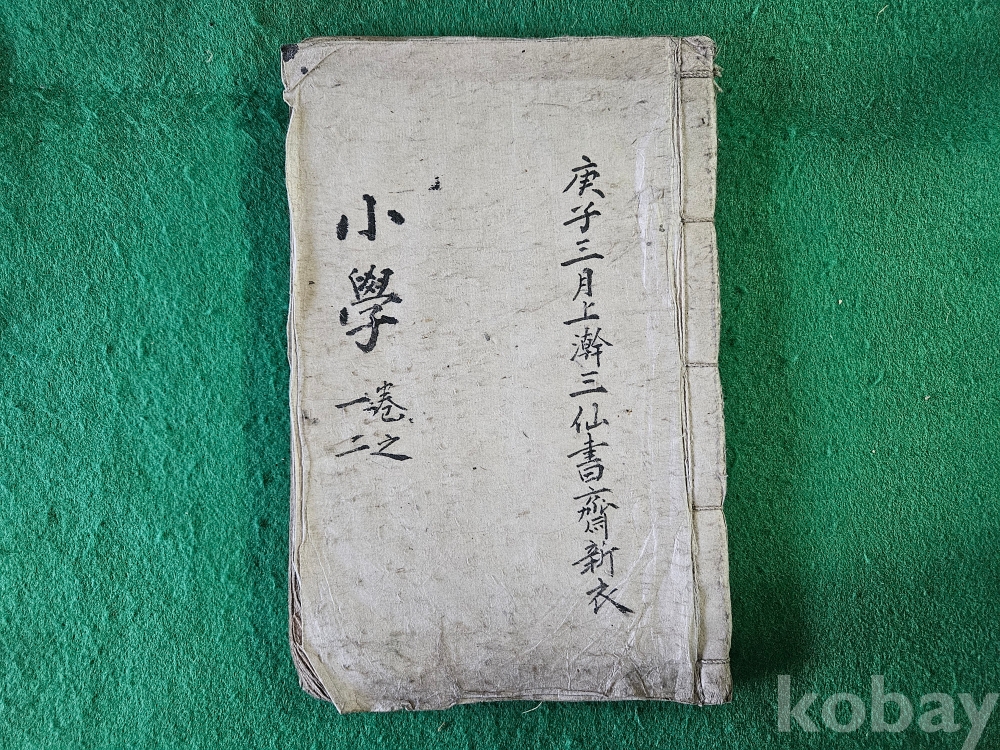 庚子三月上澣三仙書齋新衣
小學
卷之
一二
kobay